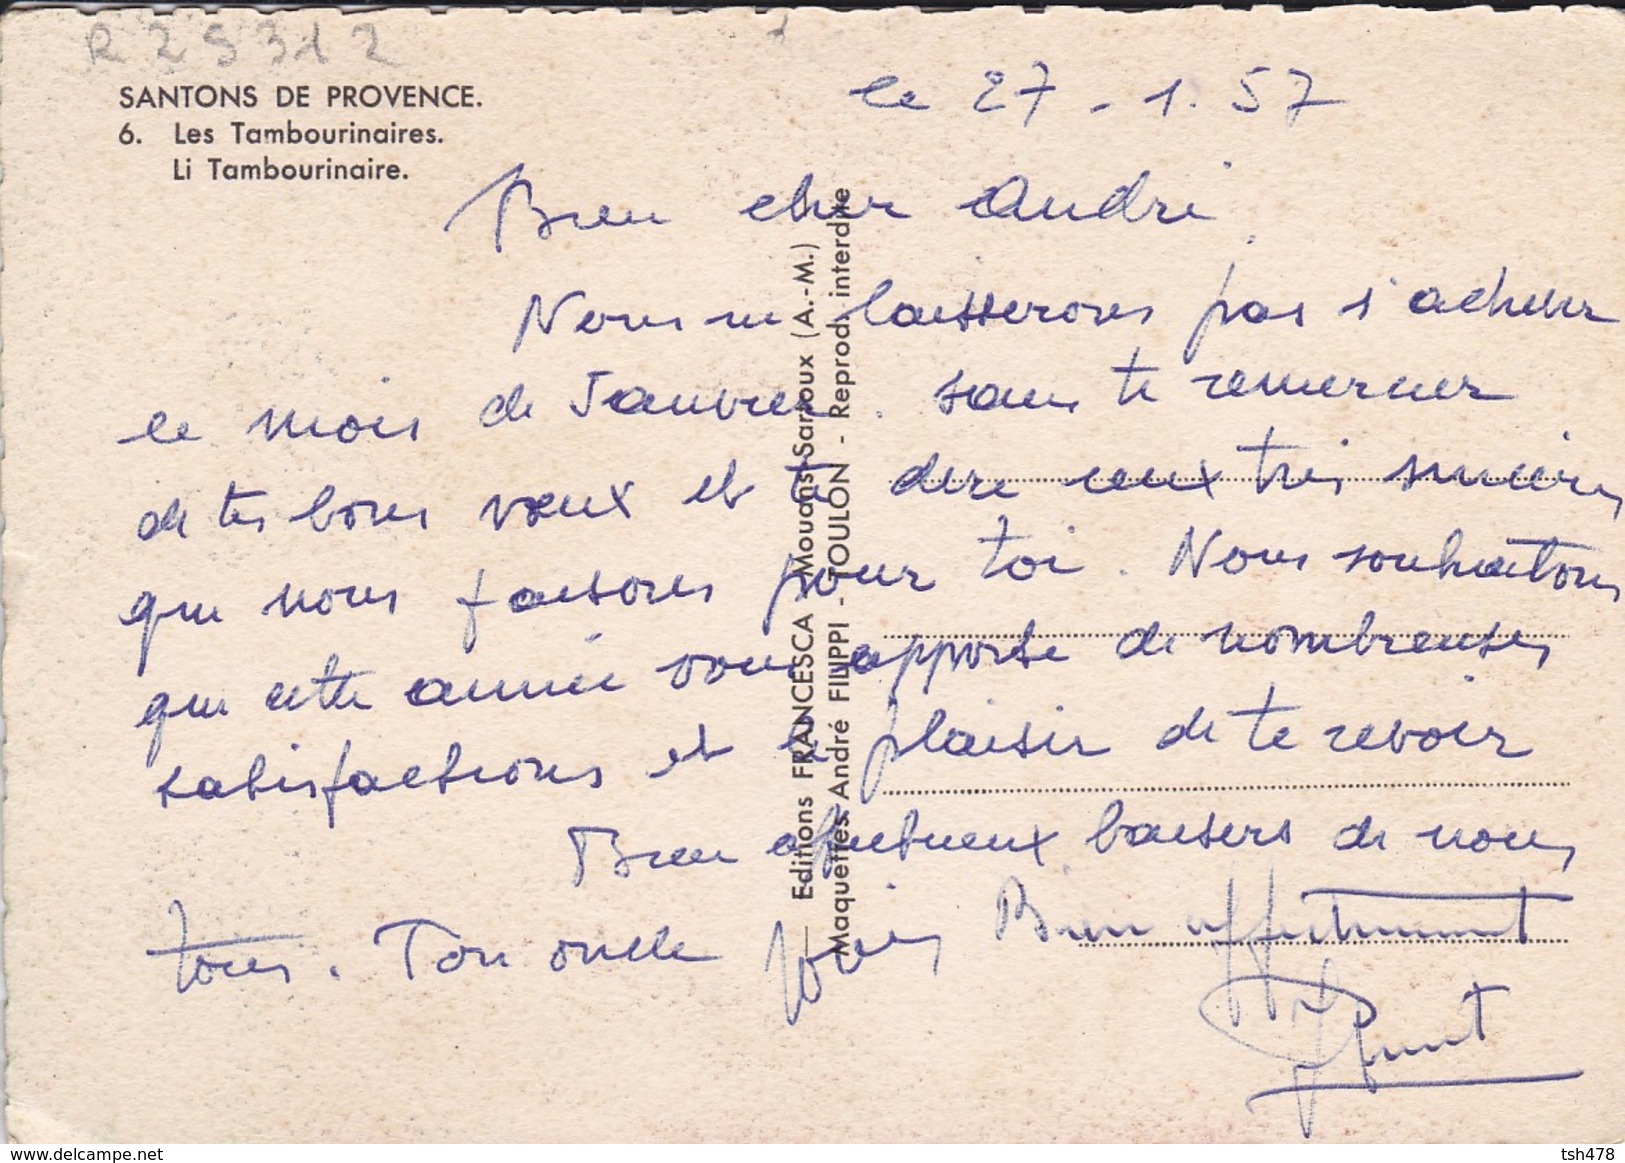 R 29312
SANTONS DE PROVENCE.
6. Les Tambourinaires.
Li Tambourinaire.
le 27 - 1. 57
Bien cher André,
Nous ne laisserons pas s'achever
le mois de Janvier. sans te remercier
de tes bons vœux et te dire ceux très sincères
que nous faisons pour toi. Nous souhaitons
que cette année vous apporte de nombreuses
satisfactions et le plaisir de te revoir
Bien affectueux baisers de nous
tous. Ton oncle
Bien affectueusement
Editions FRANCESCA - Mouans-Sartoux (A.-M.)
Maquettes André FILIPPI - TOULON - Reprod. interdite
delcampe.net
tsh478